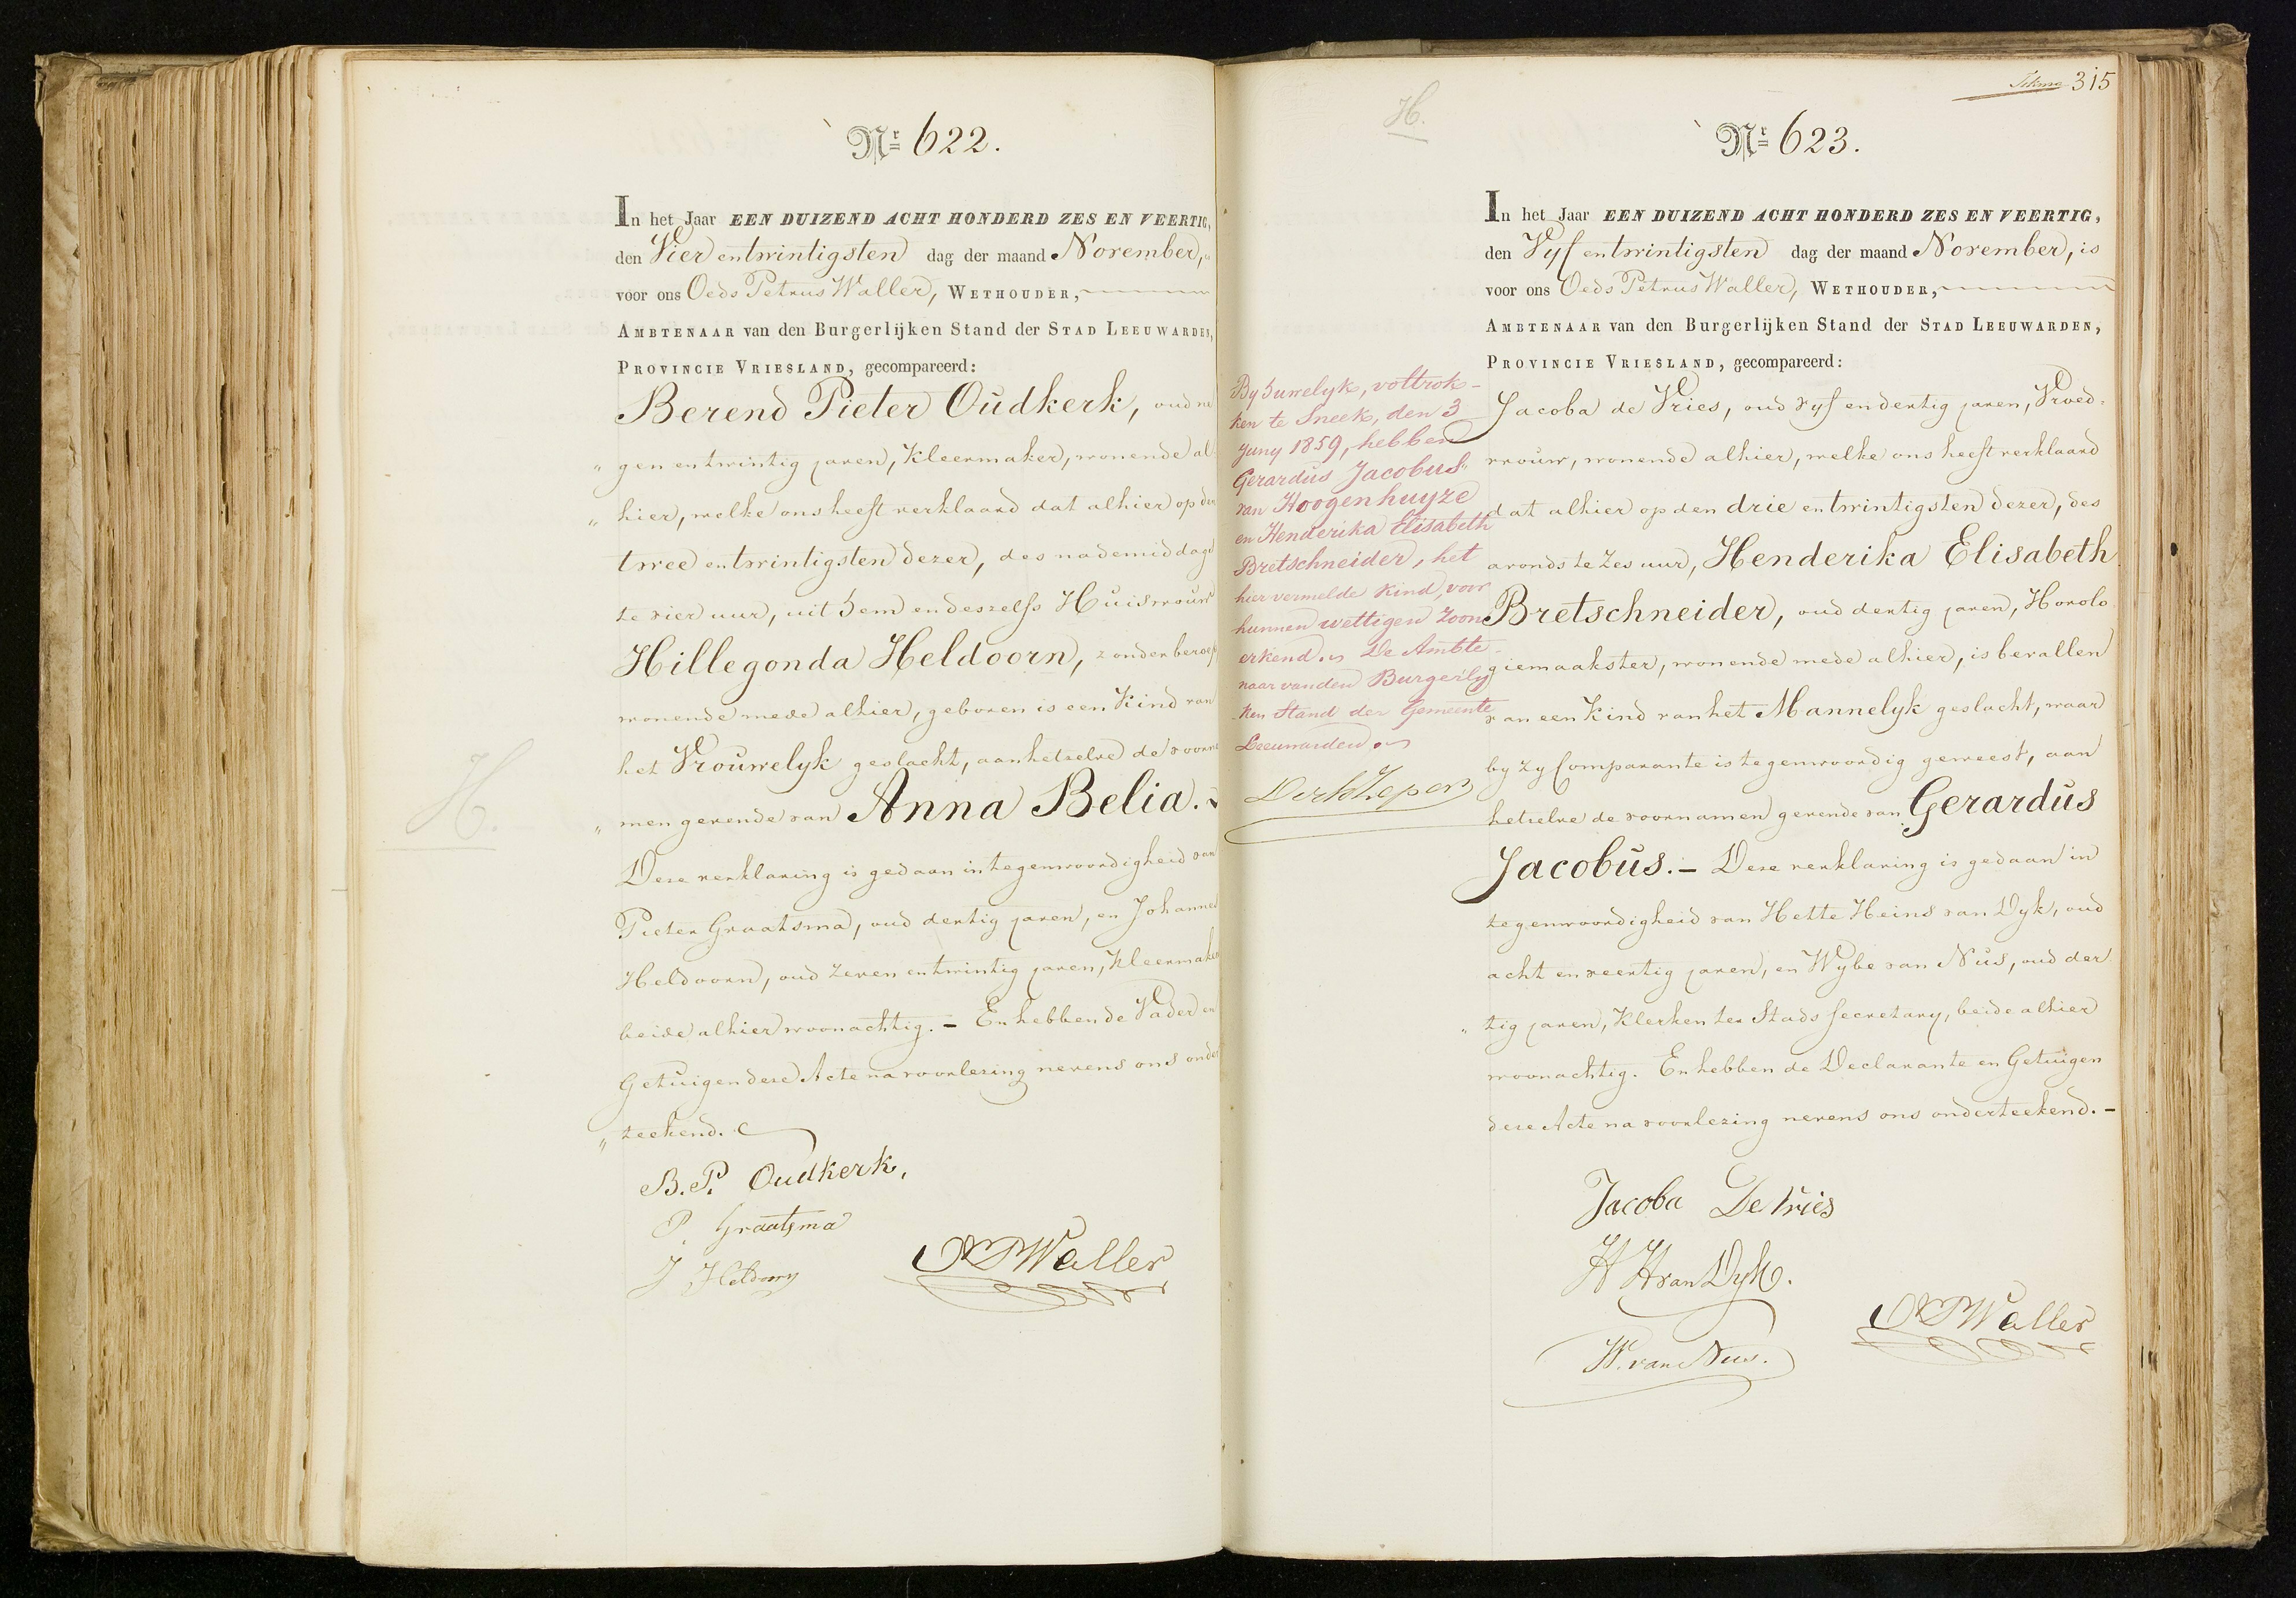 Nr 622.
In het Jaar EEN DUIZEND ACHT HONDERD ZES EN VEERTIG,
den Vier en twintigsten dag der maand November, "
voor ons Oeds Petrus Waller, WETHOUDER,
AMBTENAAR van den Burgerlijken Stand der STAD LEEUWARDEN,
PROVINCIE VRIESLAND, gecompareerd:
Berend Pieter Oudkerk, oud ne
" gen en twintig jaren, Kleermaker, wonende al
" hier, welke ons heeft verklaard dat alhier op den
twee en twintigsten dezer, des nademiddags
te vier uur, uit hem en deszelfs Huisvrouw
Hillegonda Heldoorn, zonder beroep
wonende mede alhier, geboren is een Kind van
het Vrouwelyk geslacht, aan hetzelve de voorna
" men gevende van Anna Belia.
H.
Deze verklaring is gedaan in tegenwoordigheid van
Pieter Graatsma, oud dertig jaren, en Johannes
Heldoorn, oud zeven en twintig jaren, Kleermakers
beide alhier woonachtig. – En hebben de Vader en
Getuigen deze Acte na voorlezing nevens ons onder
" teekend.
B. P. Oudkerk,
P. Graatsma
J Heldoorn
OPWaller
315
H.
Nr 623.
In het Jaar EEN DUIZEND ACHT HONDERD ZES EN VEERTIG,
den Vyf en twintigsten dag der maand November, is
voor ons Oeds Petrus Waller, WETHOUDER,
AMBTENAAR van den Burgerlijken Stand der STAD LEEUWARDEN,
PROVINCIE VRIESLAND, gecompareerd:
Jacoba de Vries, oud vyf en dertig jaren, Vroed-
vrouw, wonende alhier, welke ons heeft verklaard
dat alhier op den drie en twintigsten dezer, des
avonds te zes uur, Henderika Elisabeth
Bretschneider, oud dertig jaren, Horolo
giemaakster, wonende mede alhier, is bevallen
van een Kind van het Mannelyk geslacht, waar
by zy Comparante is tegenwoordig geweest, aan
hetzelve de voornamen gevende van Gerardus
Jacobus. – Deze verklaring is gedaan in
tegenwoordigheid van Hette Heins van Dyk, oud
acht en veertig jaren, en Wybe van Nus, oud der
" tig jaren, Klerken ter Stads Secretary, beide alhier
woonachtig. En hebben de Declarante en Getuigen
deze Acte na voorlezing nevens ons onderteekend. –
By huwelyk, voltrok-
ken te Sneek, den 3
Juny 1859, hebben
Gerardus Jacobus
van Hoogenhuyze
en Henderika Elisabeth
Bretschneider, het
hier vermelde Kind, voor
hunnen wettigen Zoon
erkend. De Ambte-
naar van den Burgerly
ken Stand der Gemeente
Leeuwarden.
Jacoba De Vries
H H van Dyk.
W. van Nus.
OPWaller